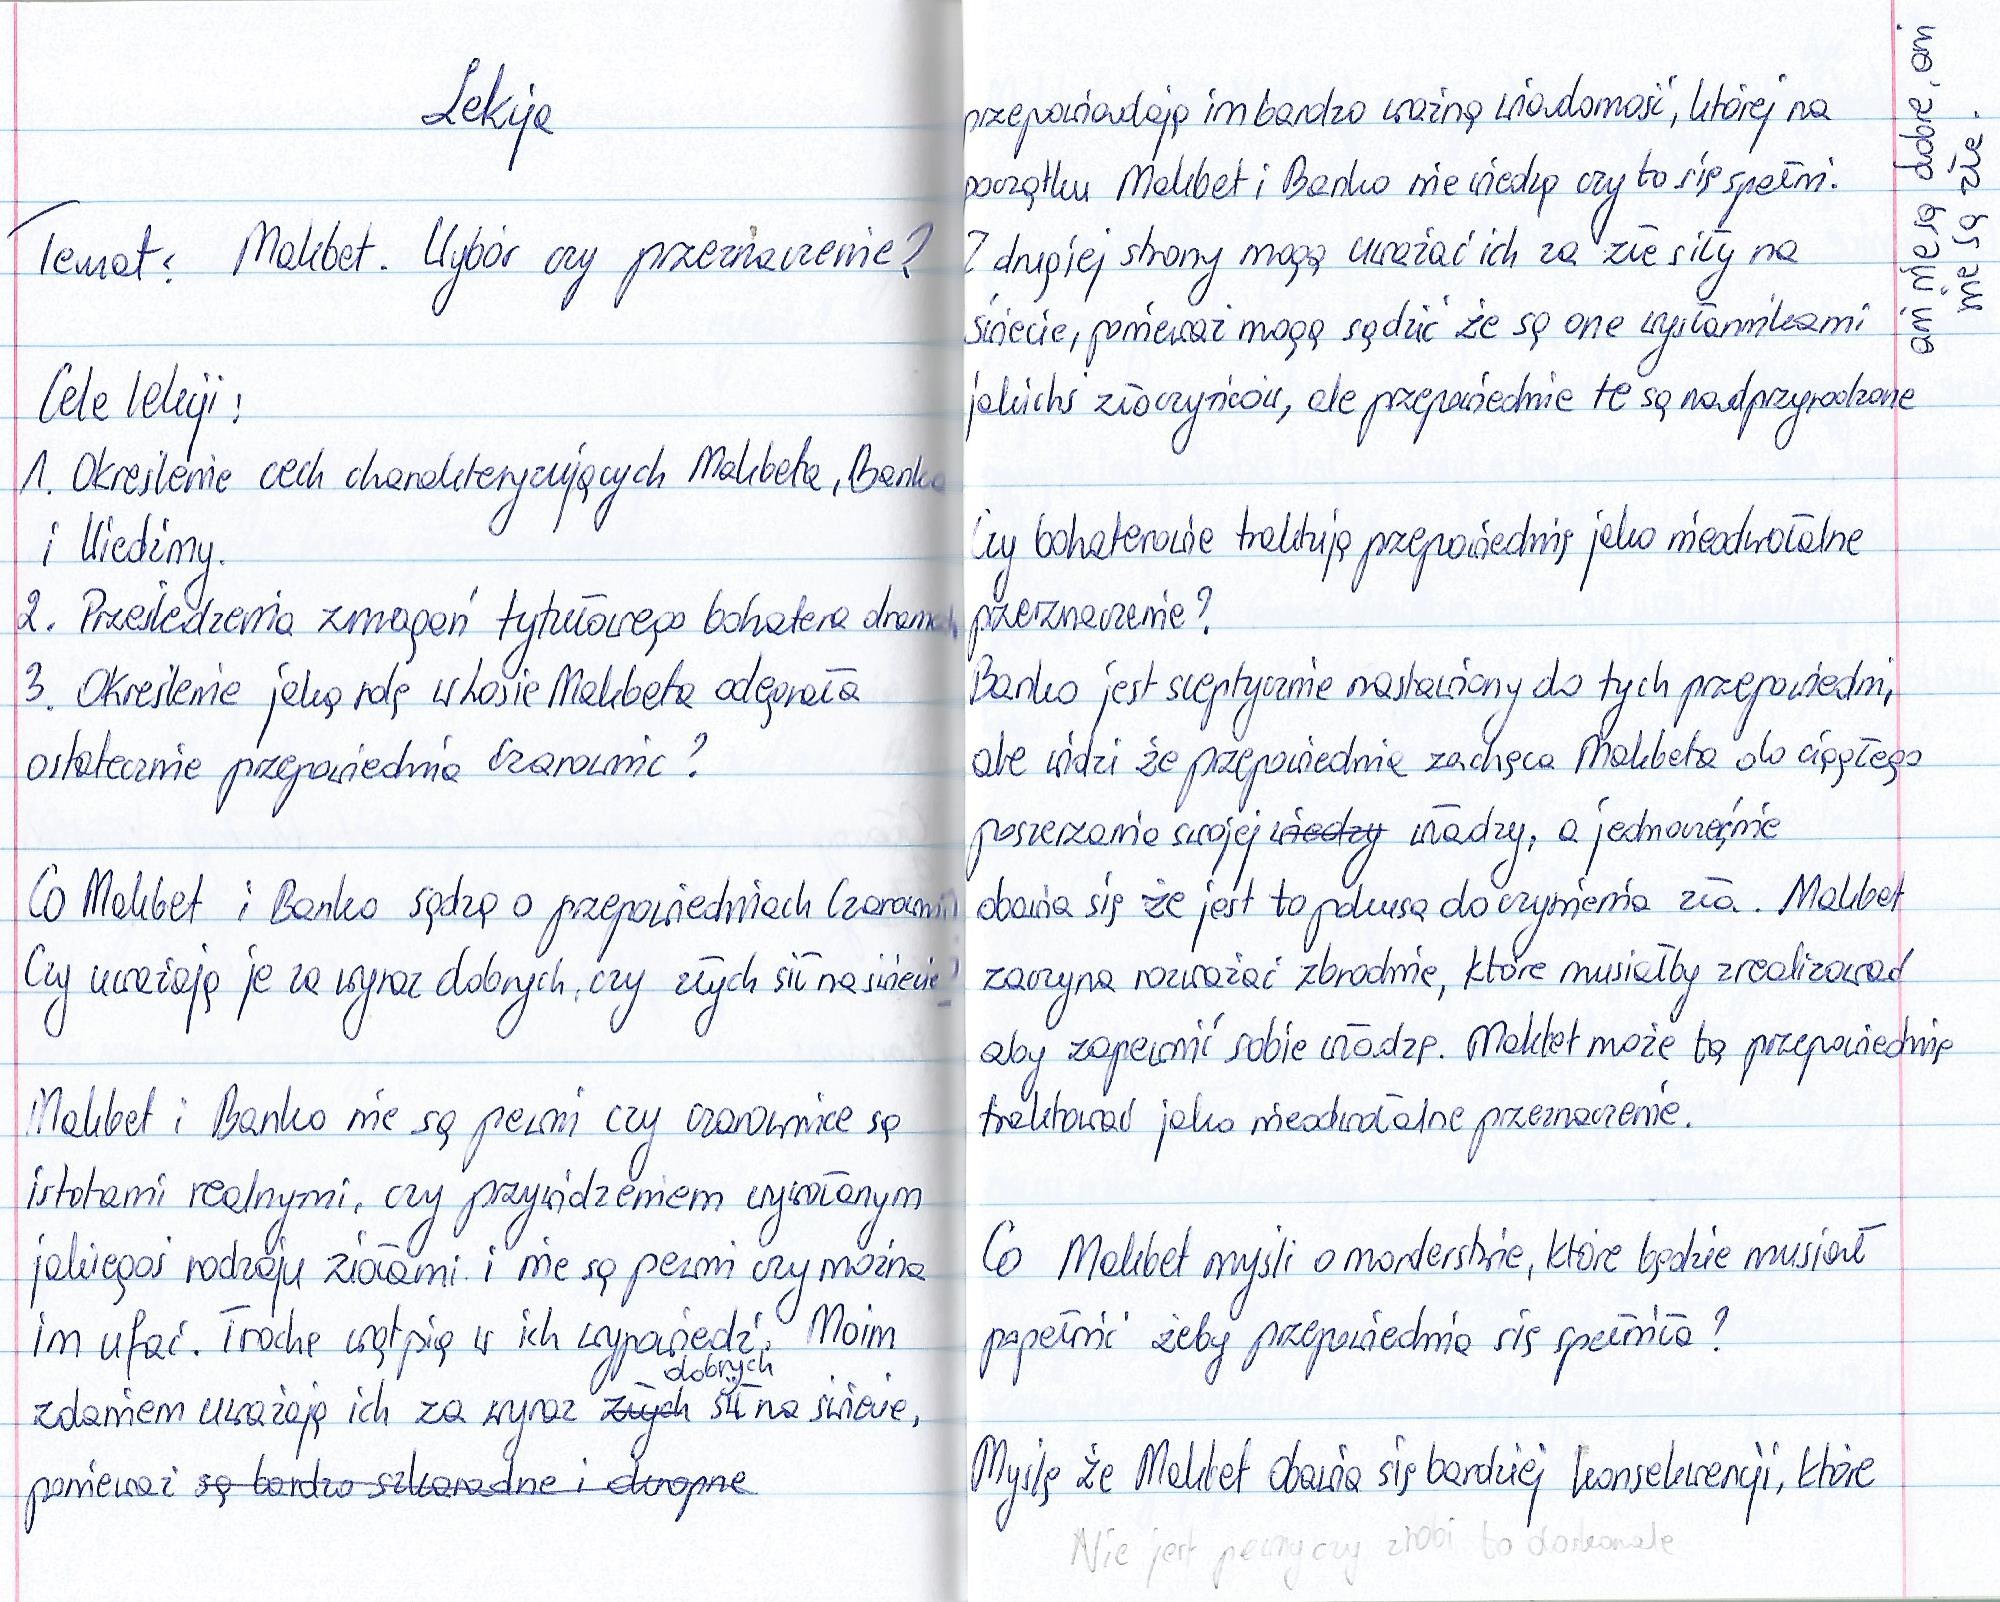 Lekcja
Temat: Makbet. Wybór czy przeznaczenie?
Cele lekcji:
1. Określenie cech charakteryzujących Makbeta, Banka
i Wiedźmy.
2. Prześledzenia zmagań tytułowego bohatera dramat
3. Określenie jaką rolę w losie Makbeta odegrała
ostatecznie przepowiednia Czarownic?
Co Makbet i Banko sądzą o przepowiedniach Czarowni
Czy uważają je za wyraz dobrych, czy złych sił na świecie?
Makbet i Banko nie są pewni czy czarownice są
istotami realnymi, czy przywidzeniem wywołanym
jakiegoś rodzaju ziołami i nie są pewni czy można
im ufać. Trochę wątpią w ich wypowiedź. Moim
dobrych
zdaniem uważają ich za wyraz złych sił na świecie,
ponieważ są bardzo szkaradne i okropne
przepowiadają im bardzo ważną wiadomość, której na
początku Makbet i Banko nie wiedzą czy to się spełni.
Z drugiej strony mogą uważać ich za złe siły na
świecie, ponieważ mogą sądzić że są one wysłannikami
jakichś złoczyńców, ale przepowiednie te są nadprzyrodzone
ani nie są dobre, ani
nie są złe.
Czy bohaterowie traktują przepowiednię jako nieodwołalne
przeznaczenie?
Banko jest sceptycznie nastawiony do tych przepowiedni,
ale widzi że przepowiednie zachęca Makbeta do ciągłego
poszerzania swojej wiedzy władzy, a jednocześnie
obawia się że jest to pokusa do czynienia zła. Makbet
zaczyna rozważać zbrodnie, które musiałby zrealizować
aby zapewnić sobie władzę. Makbet może tą przepowiednię
traktować jako nieodwołalne przeznaczenie.
Co Makbet myśli o morderstwie, które będzie musiał
popełnić żeby przepowiednia się spełniła?
Myślę że Makbet obawia się bardziej konsekwencji, które
Nie jest pewny czy zrobi to doskonale